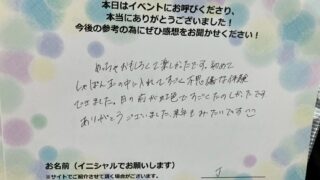 本日はイベントにお呼びくださり、
本当にありがとうございました！
今後の参考の為にぜひ感想をお聞かせください！
めっちゃおもしろくて楽しかったです。初めて
しゃぼん玉の中に入れてすごく不思議な体験
できました。目の前が虹色ですごくたのしかったです
ありがとうございました、来年もみたいです
お名前（イニシャルでお願いします）
※サイトでご紹介させて頂く場合がございます。
J